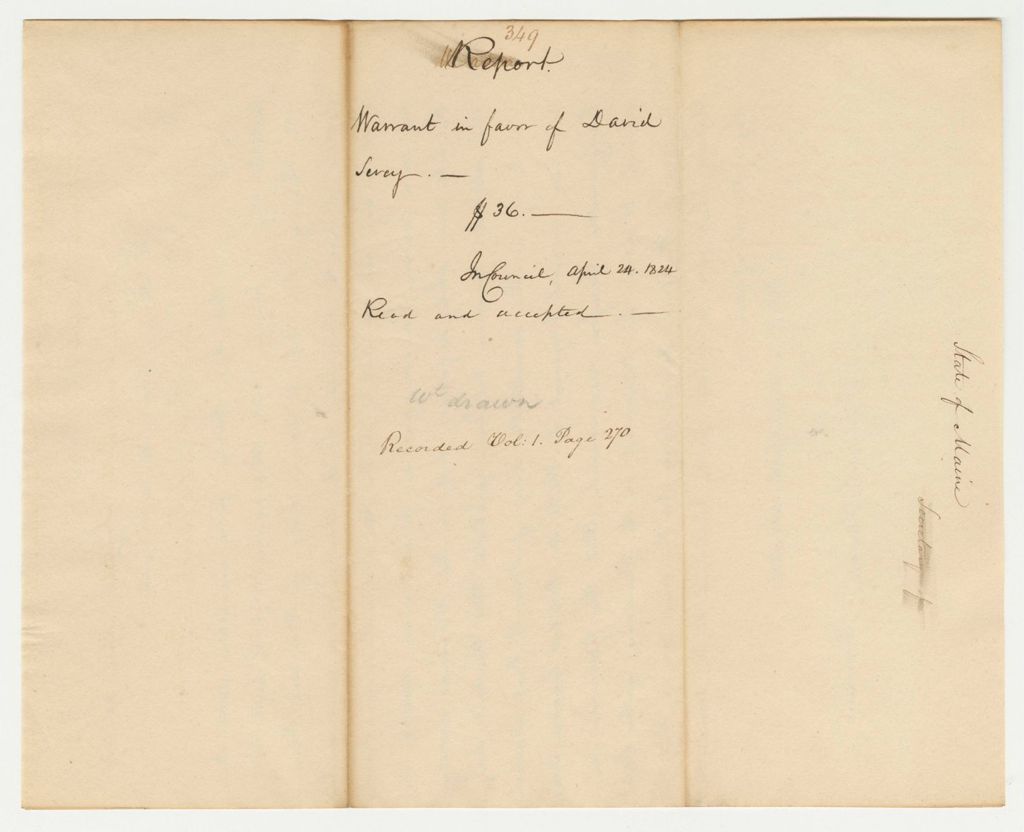 349
Report.
Warrant in favor of David
Sevey. —
$36. —
In Council, April 24. 1824
Read and accepted. —
Wt drawn
Recorded Vol: 1. Page 270
State of Maine
Secretary of